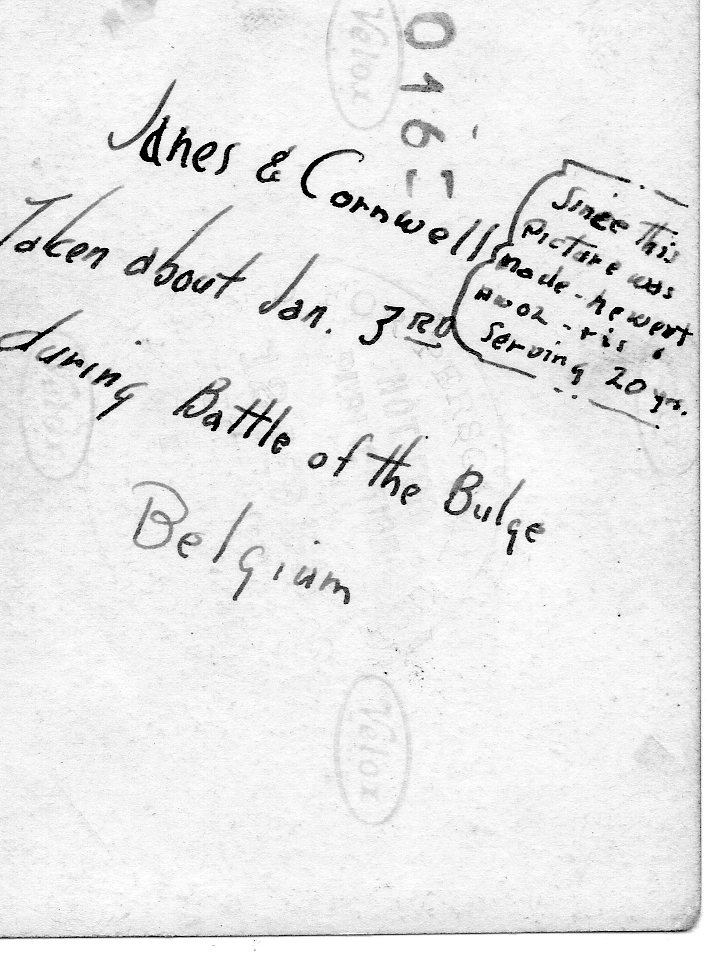 Velox
016
Janes & Cornwell
Taken about Jan. 3RD
during Battle of the Bulge
Belgium
Since this
picture was
made - he went
AWOL - & is
serving 20 yrs.
Velox
Velox